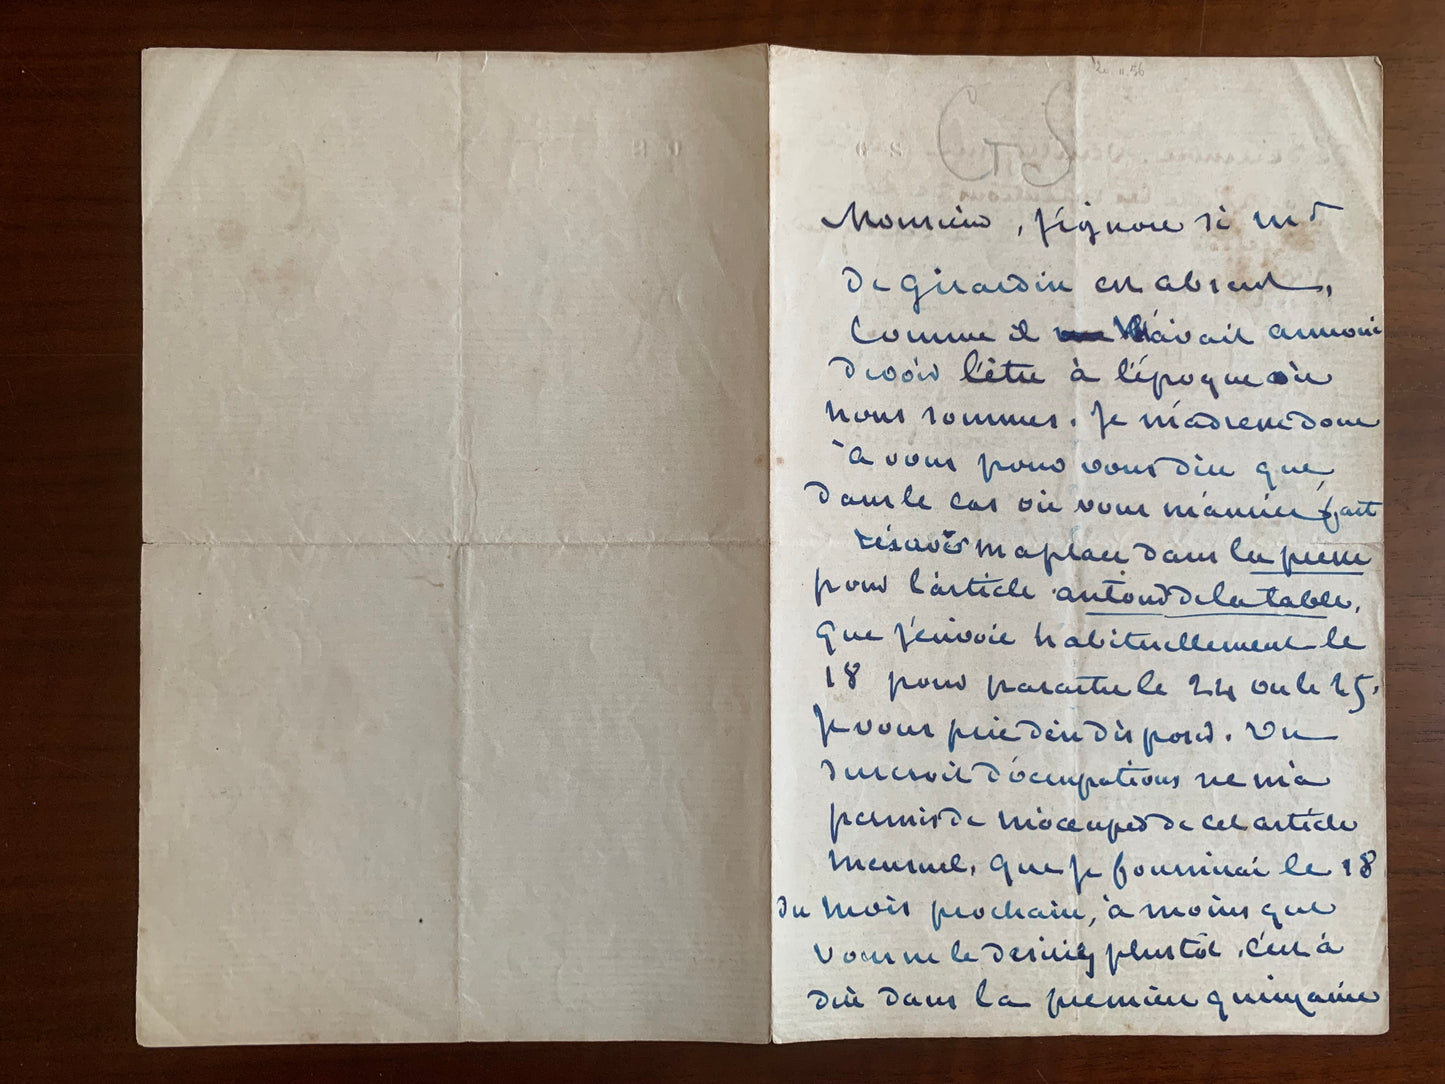 20 11.56
GS
GS
Monsieur, j'ignore si mr
de girardin est absent,
comme il m'avait annoncé
devoir l'être à l'époque où
nous sommes. Je m'adresse donc
à vous pour vous dire que
dans le cas où vous m'auriez fait
réserver ma place dans la presse
pour l'article autour de la table,
que j'envoie habituellement le
18 pour paraître le 24 ou le 25.
je vous prie d'en disposer. Un
surcroit d'occupations ne m'a
permis de m'occuper de cet article
mensuel, que je fournirai le 18
du mois prochain, à moins que
vous ne le desiriez plustot, c'est à
dire dans la premiere quinzaine